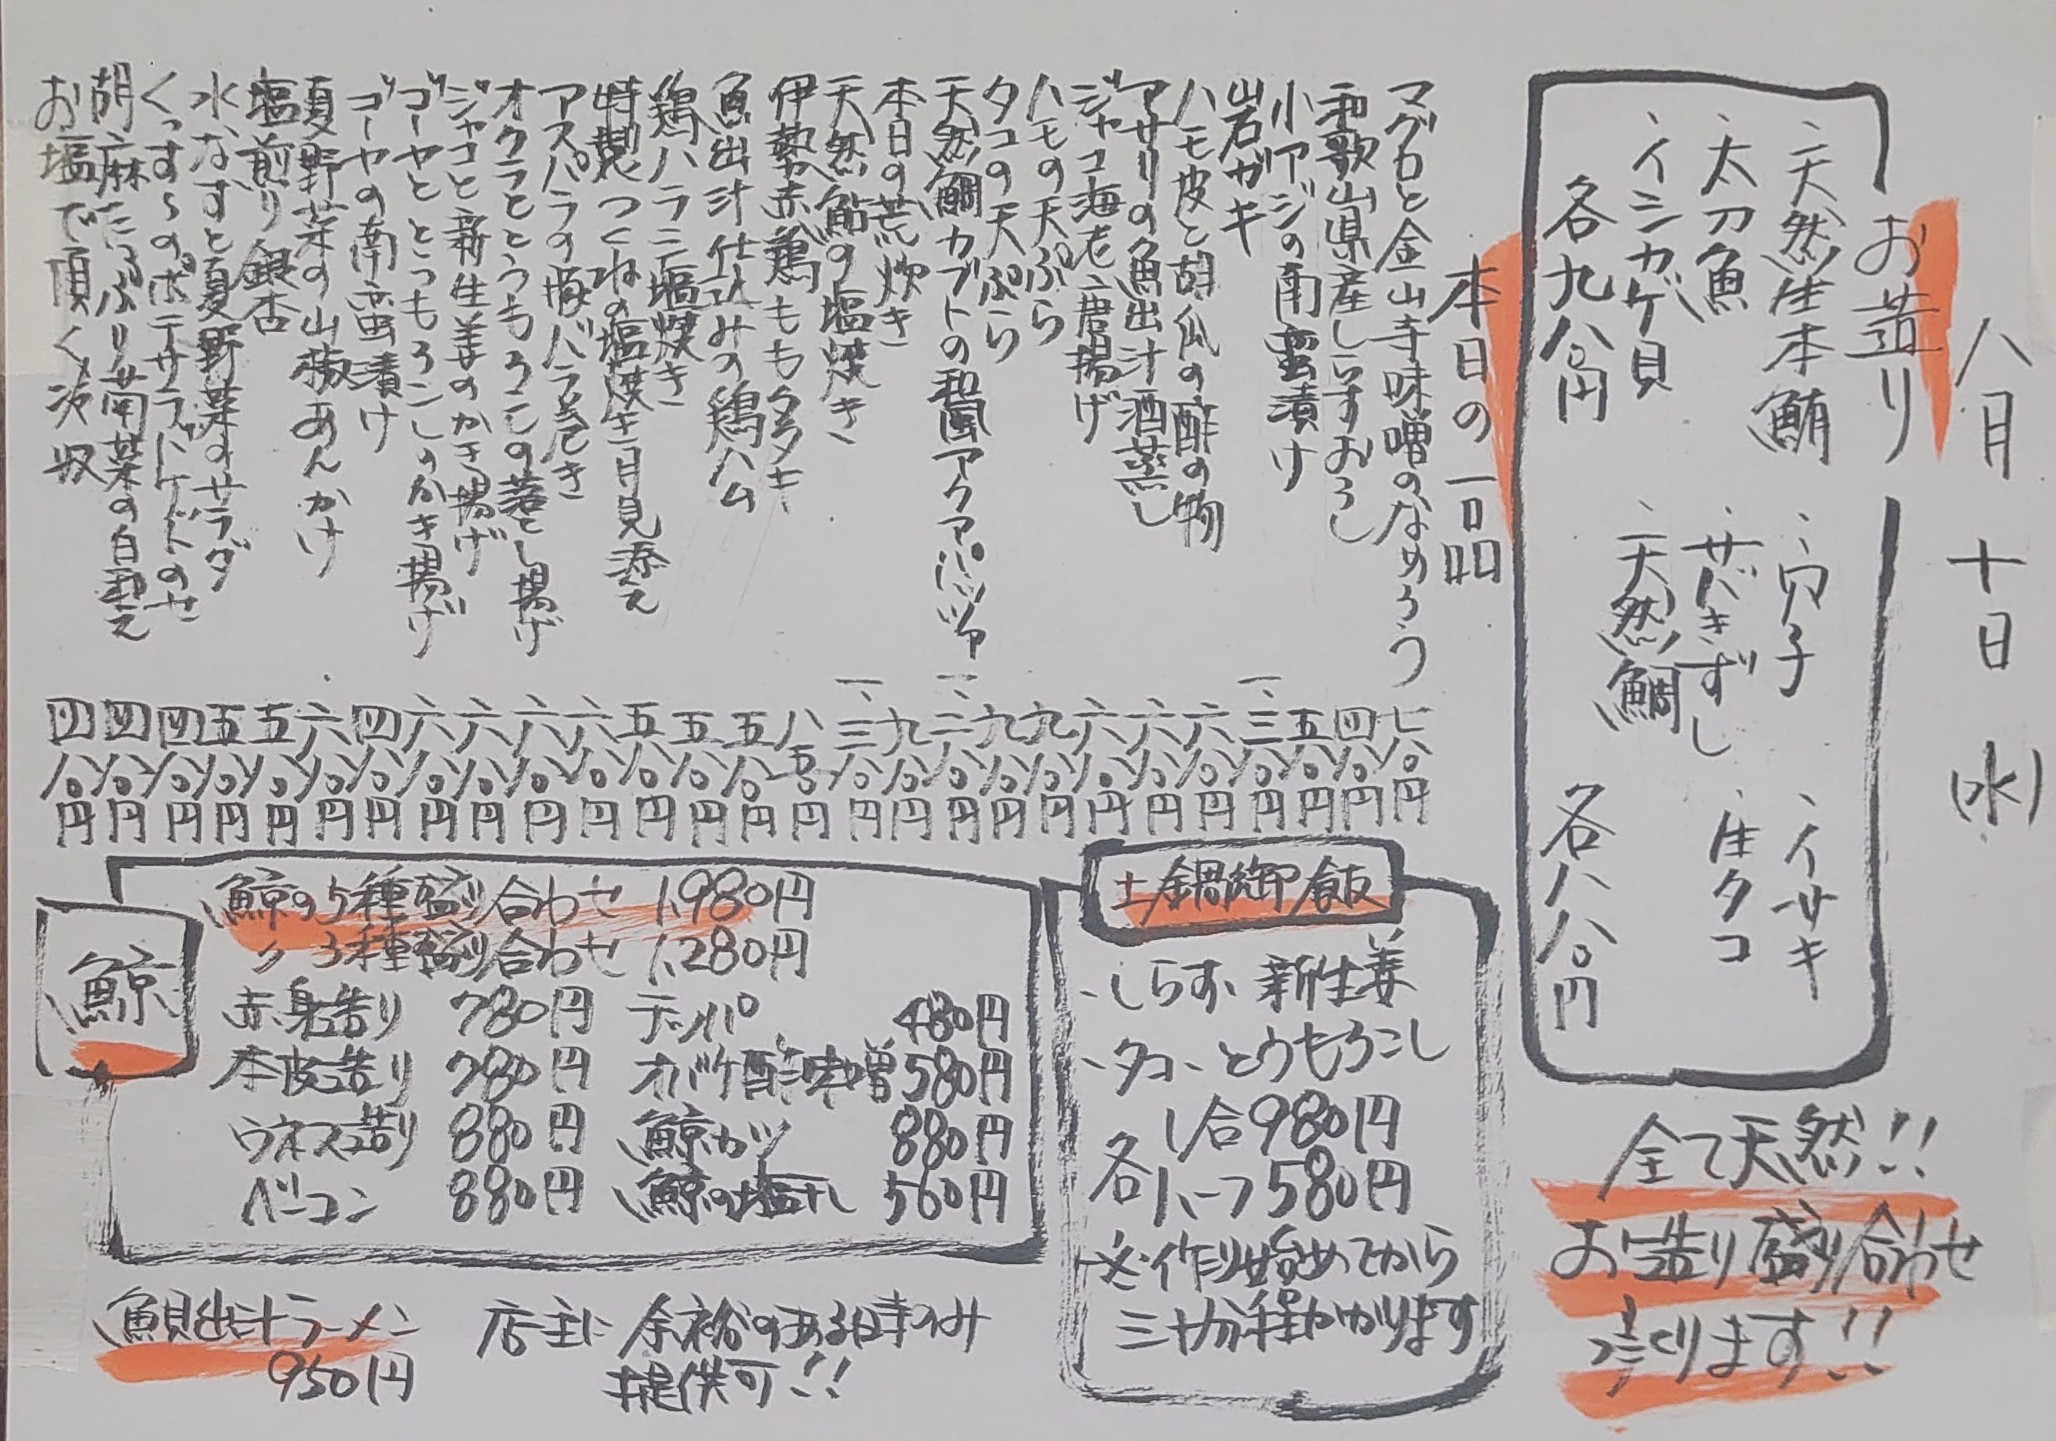 八月十日(水)
お造り
、天然生本鮪
、太刀魚
、イシカゲ貝
各九八〇円
、穴子
、サバきずし
、天然鯛
、イサキ
、生タコ
各八八〇円
全て天然!!
お造り盛り合わせ
つくります!!
本日の一品
マグロと金山寺味噌のなめろう 七八〇円
和歌山県産しらすおろし 四八〇円
小アジの南蛮漬け 五八〇円
岩ガキ 一、三八〇円
ハモ皮と胡瓜の酢の物 六八〇円
アサリの魚出汁酒蒸し 六八〇円
ジャコ海老唐揚げ 六八〇円
ハモの天ぷら 九八〇円
タコの天ぷら 九八〇円
天然鯛カブトの和風アクアパッツァ 一、二八〇円
本日の荒炊き 九八〇円
天然鮎の塩焼き 一、三八〇円
伊勢赤鶏ももタタキ 八五〇円
魚出汁仕込みの鶏ハム 五八〇円
鶏ハラミ塩焼き 五八〇円
特製つくねの塩焼き月見添え 五八〇円
アスパラの豚バラ巻き 六八〇円
オクラととうもろこしの落とし揚げ 六八〇円
ジャコと新生姜のかき揚げ 六八〇円
ゴーヤととうもろこしのかき揚げ 六八〇円
ゴーヤの南蛮漬け 四八〇円
夏野菜の山椒あんかけ 六八〇円
塩煎り銀杏 五八〇円
水なすと夏野菜のサラダ 五八〇円
くっすーのポテサラドケドケのせ 四八〇円
胡麻たっぷり青菜の白和え 四八〇円
お塩で頂く冷奴 四八〇円
土鍋御飯
、しらす、新生姜
、タコ、とうもろこし
各
1合980円
ハーフ580円
※作り始めてから
三十分程かかります
鯨
鯨の5種盛り合わせ 1,980円
〃 3種盛り合わせ 1,280円
赤身造り 780円
本皮造り 780円
ウネス造り 880円
ベーコン 880円
テッパ 480円
オバケ酢味噌 580円
鯨カツ 880円
鯨の塩干し 560円
魚貝出汁ラーメン
950円
店主に余裕のある時のみ
提供可!!